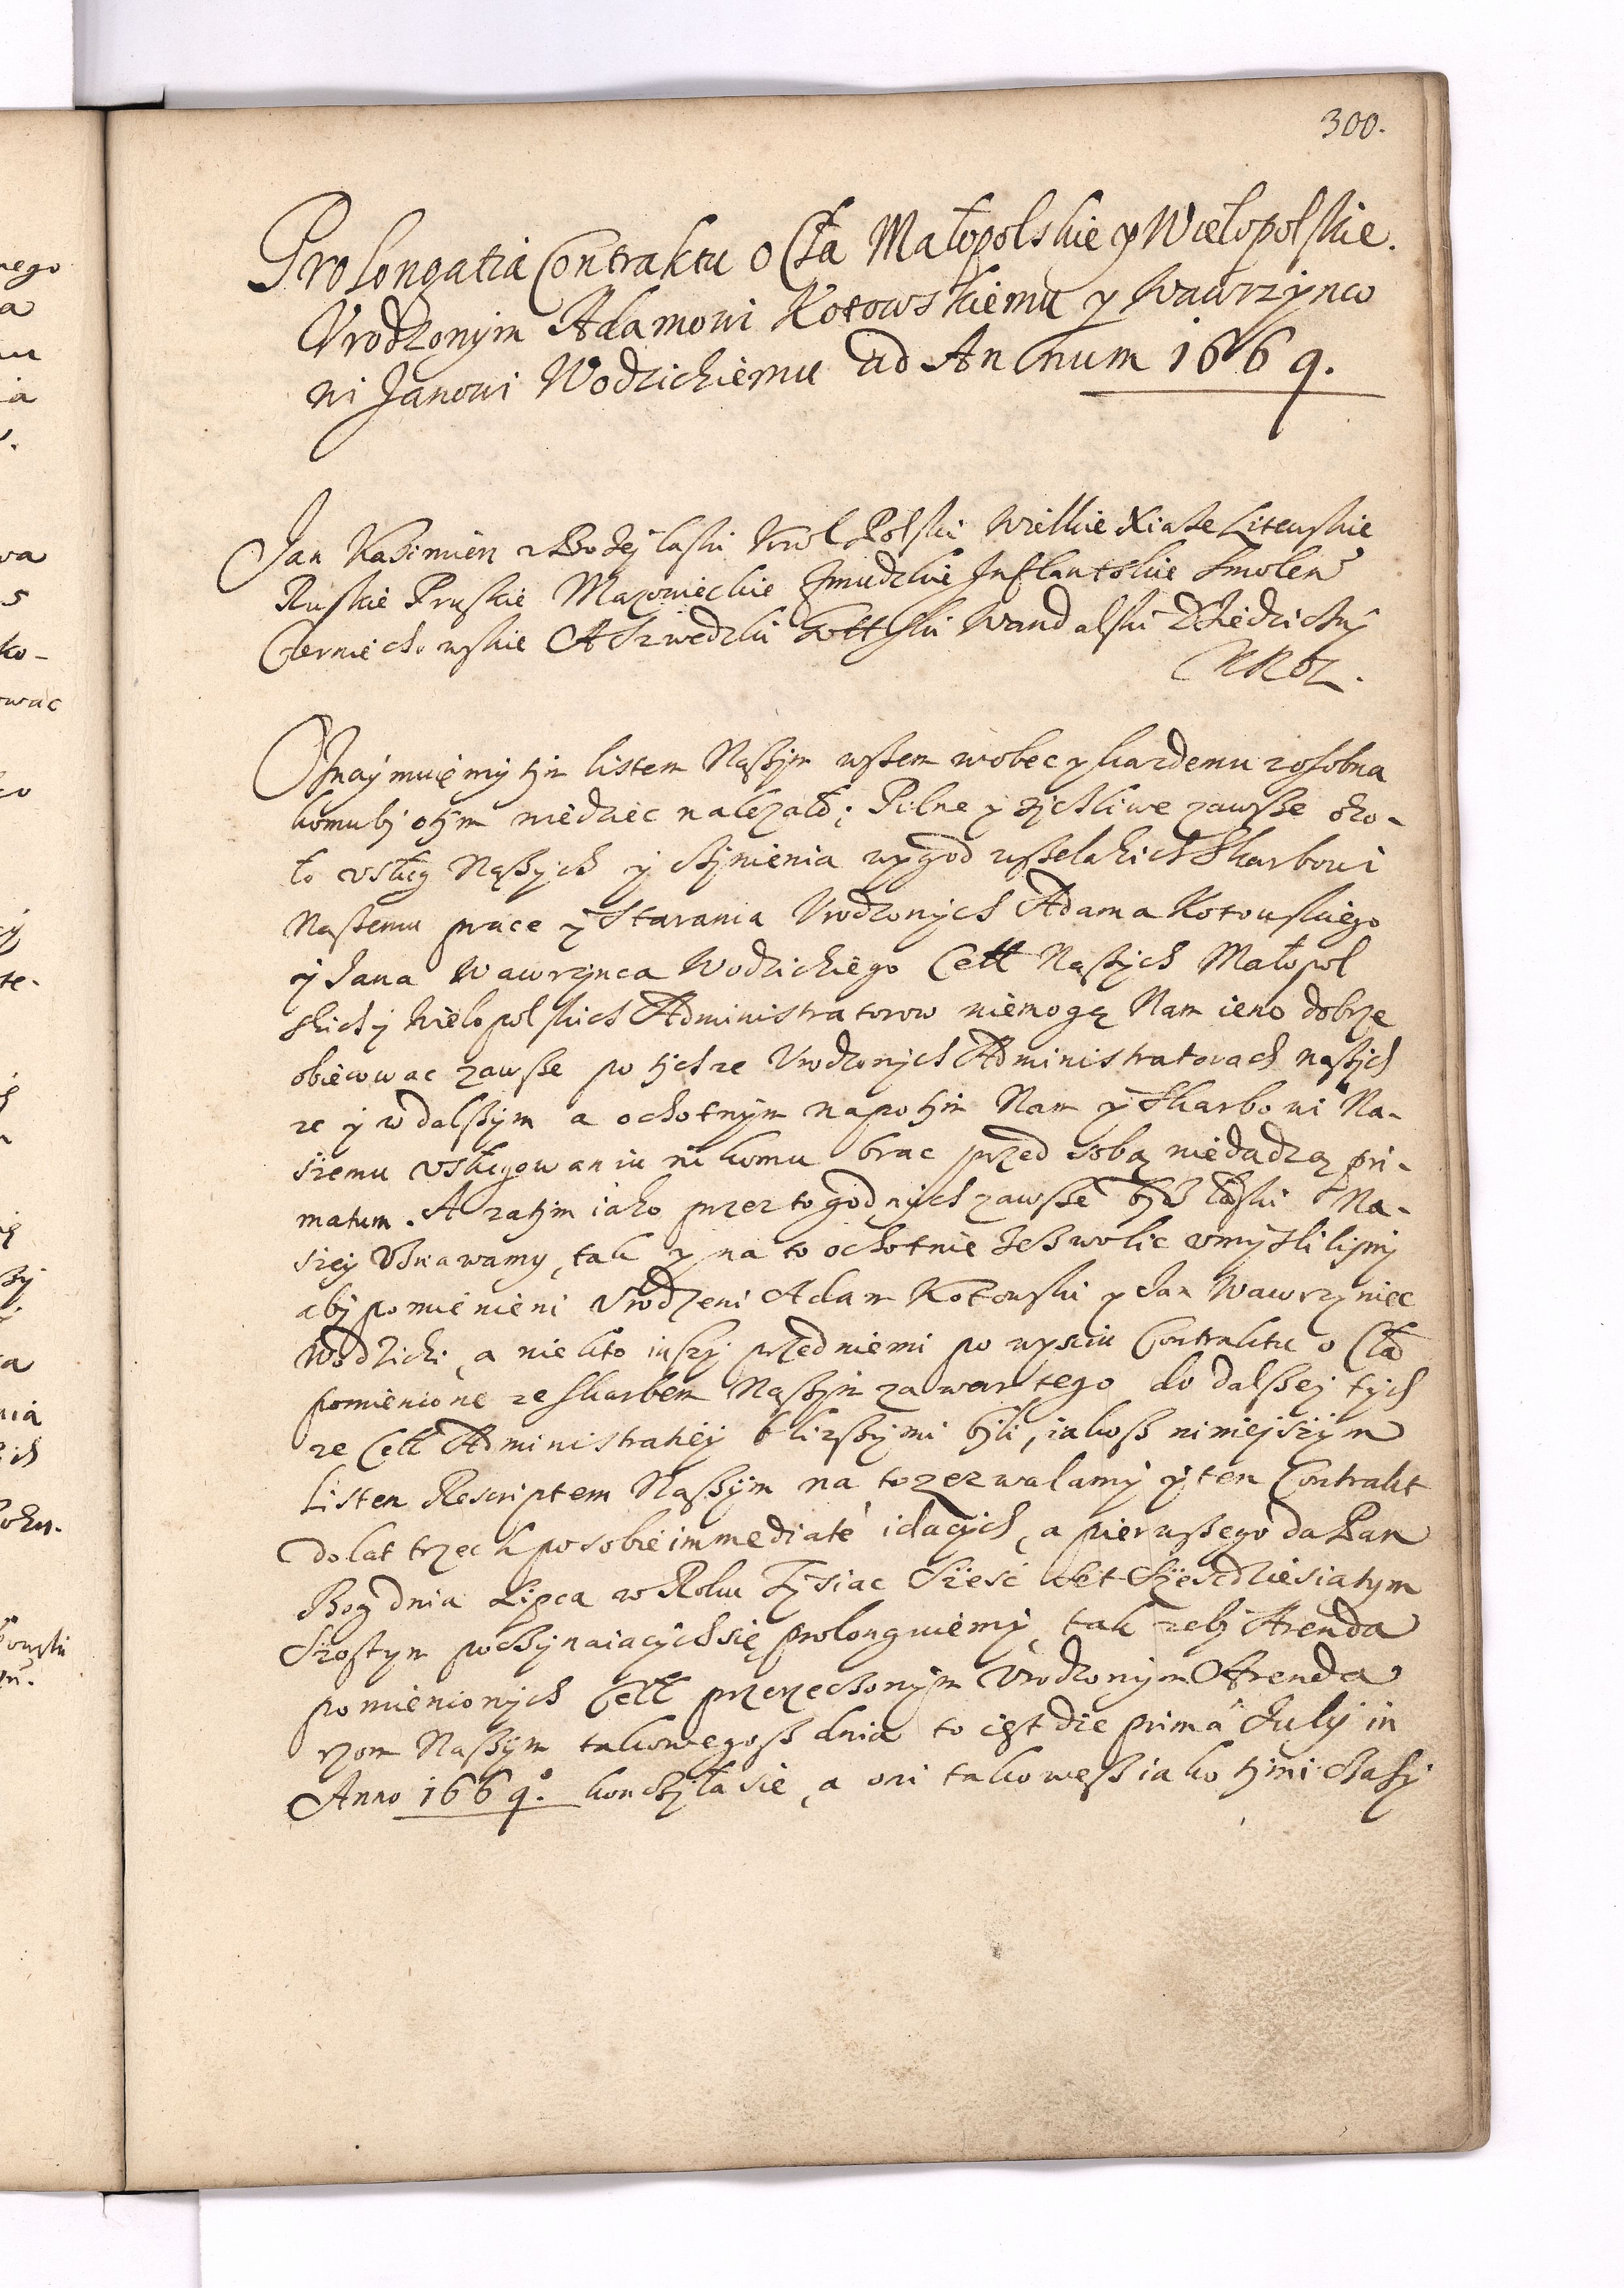 300.
Prolongatia Contraktu o Cła Małopolskie y Wielopolskie.
Vrodzonym Adamowi Kotowskiemu y Wawrzynco
wi Janowi Wodzickiemu ad Annum 1669.
Jan Kazimierz z Bożey łaski Krol Polski Wielkie Xiaże Litewskie
Ruskie Pruskie Mazowieckie Żmudzkie Inflantskie Smolen̄
Czerniechowskie A Szwedzki Gottski Wandalski Dziedziczny
Krol.
Oznaymuięmy tym listem Naszym wszem wobec y kazdemu zosobna
komuby otym wiedziec nalezało; Pilne y zyczliwe zawsze oko-
ło vsług Naszych y czynienia wygod wszelakich Skarbowi
Naszemu prace y Starania Vrodzonych Adama Kotowskiego
y Jana Wawrzynca Wodzickiego Cełł Naszych Małopol
skich y Wielopolskich Administratorow niemogą Nam ieno dobrze
obiecowac zawsze po tychze Vrodzonych Administratorach naszych
ze y w dalszym a ochotnym napotym Nam y Skarbowi Na-
szemu vsługowaniu nikomu brac przed sobą niedadzą pri-
matum. A zatym iako przez to godnych zawsze bydz łaski Na-
szey vznawamy, tak y na to ochotnie zezwolic vmyslilismy
aby pomienieni Vrodzeni Adam Kotowski y Jan Wawrzyniec
Wodzicki, a niekto inszy przed niemi po wysciu Contraktu o Cła
pomienione ze skarbem Naszym zawartego do dalszey tych
ze Cełł Administratiey blizszymi byli, iakosz ninieyszym
Listem Rescriptem Naszym na to zezwalamy y ten Contrakt
do lat trzech po sobie immediate idących, a pierwszego da Pan
Bog dnia Lipca w Roku Tysiac Szesc set Szescdziesiatym
Szostym poczynaiacych się prolonguiemy, tak zeby Arenda
pomienionych Cełł przerzeczonym Vrodzonym Arenda
rzom Naszym takowegosz dnia to iest die prima July in
Anno 1669.º konczyła sie, a oni takowesz iako tymi czasy